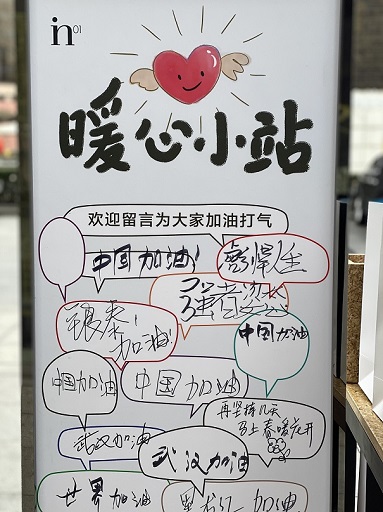 in01
暖心小站
欢迎留言为大家加油打气
中国加油!
加油!
中国加油
中国加油
中国加油
再坚持几天
马上春暖花开
武汉加油
武汉加油
世界加油
加油